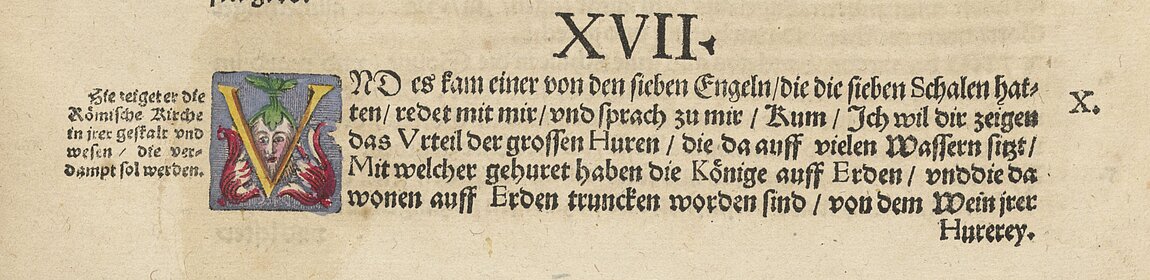 XVII.
Hie zeiget er die
Römische Kirche
in jrer gestalt vnd
wesen / die ver-
dampt sol werden.
VND es kam einer von den sieben Engeln/die die sieben Schalen hat-
ten/ redet mit mir/vnd sprach zu mir / Kum / Ich wil dir zeigen
das Vrteil der grossen Huren / die da auff vielen Wassern sitzt/
Mit welcher gehuret haben die Könige auff Erden / vnddie da
wonen auff Erden truncken worden sind / von dem Wein jrer
Hurerey.
X.